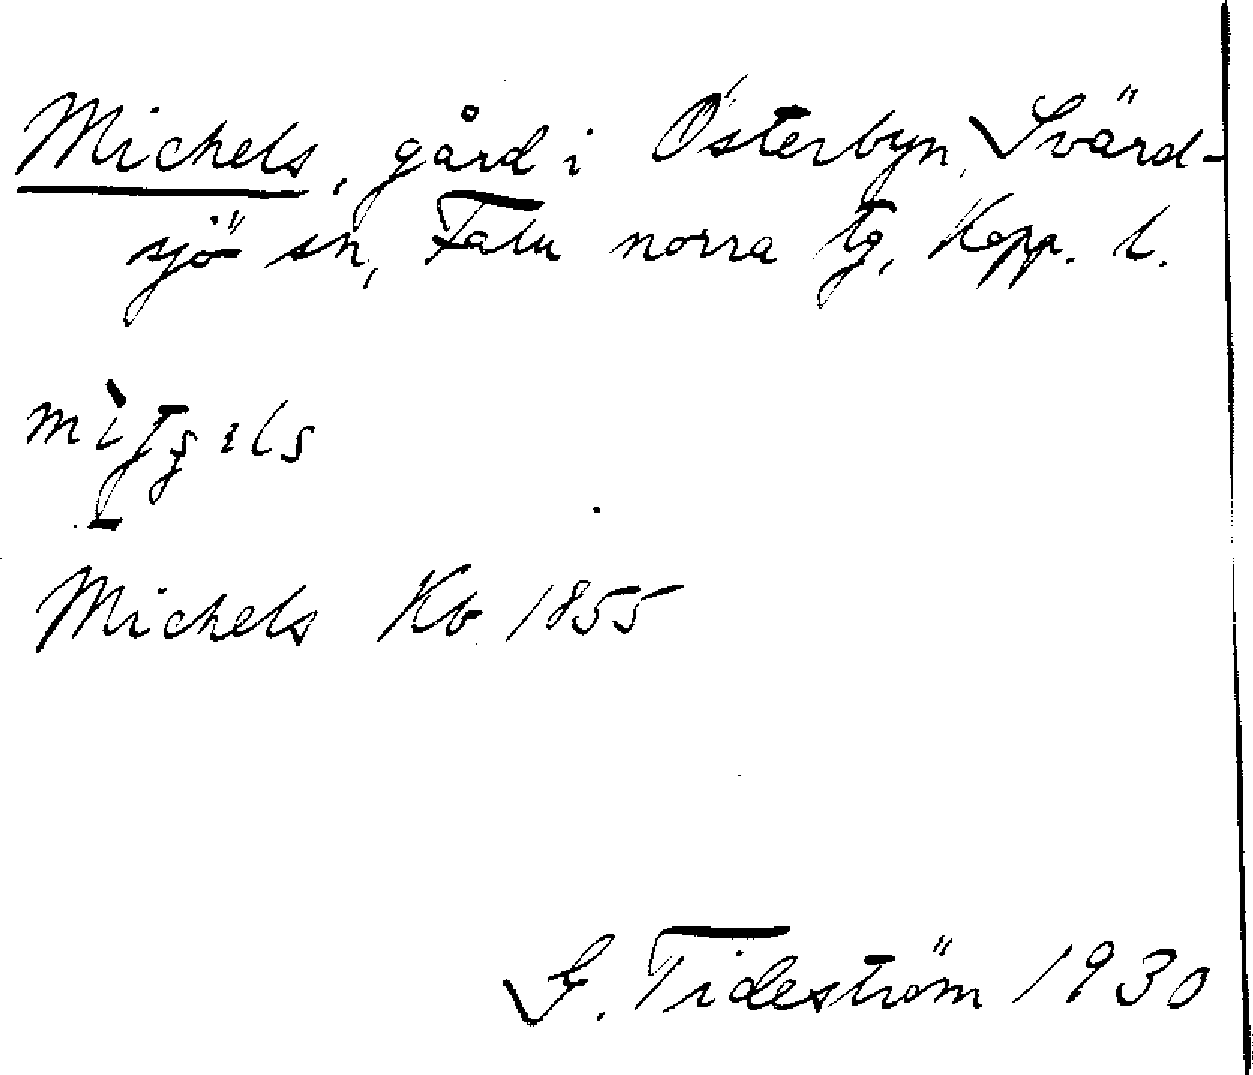 Michels, gård i Österbyn, Svärd-
sjö sn, Falu norra tg, Kopp. l.
Michels Kb 1855
G. Tideström 1930